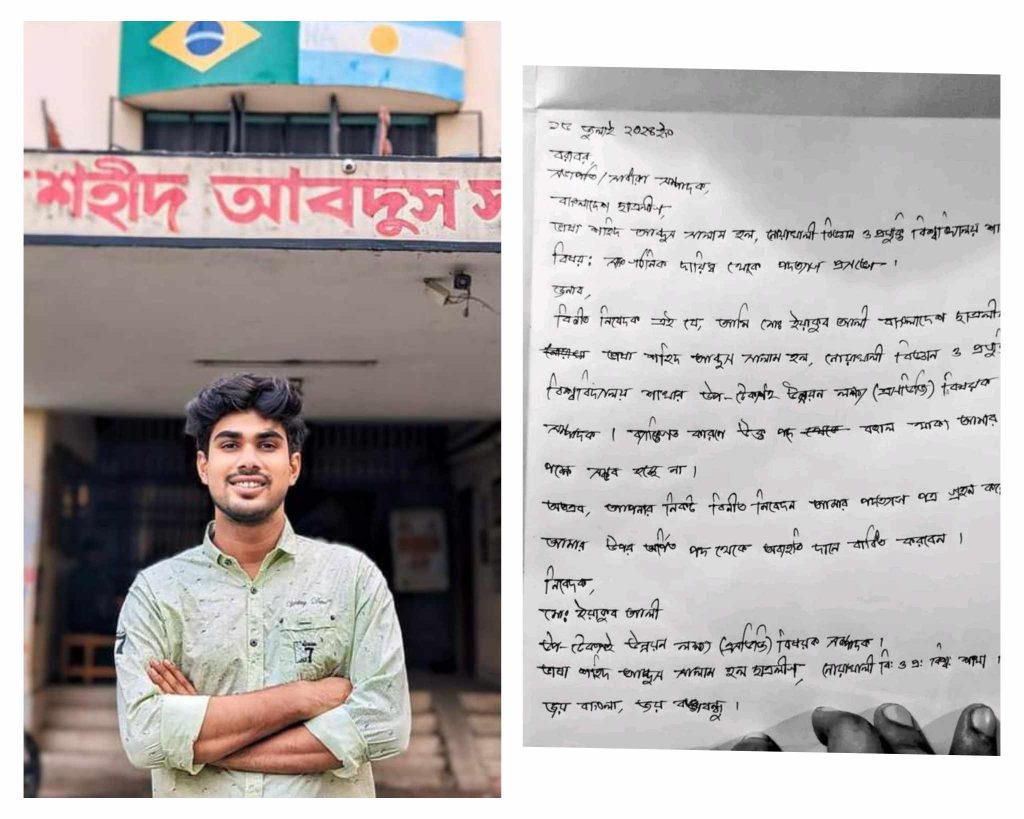 শহীদ আবদুস স
7
7
১৫ জুলাই ২০২৪ইং
বরাবর,
সভাপতি/সাধারণ সম্পাদক,
বাংলাদেশ ছাত্রলীগ,
ভাষা শহিদ আব্দুস সালাম হল, নোয়াখালী বিজ্ঞান ও প্রযুক্তি বিশ্ববিদ্যালয় শা
বিষয়: সাংগঠনিক দায়িত্ব থেকে পদত্যাগ প্রসঙ্গে।
জনাব,
বিনীত নিবেদক এই যে, আমি মোঃ ইয়াকুব আলী বাংলাদেশ ছাত্রলী
ভাষা শহিদ আব্দুস সালাম হল, নোয়াখালী বিজ্ঞান ও প্রযুক্তি
বিশ্ববিদ্যালয় শাখার উপ-টেকসই উন্নয়ন লক্ষ্য (এসডিজি) বিষয়ক
সম্পাদক। ব্যক্তিগত কারণে উক্ত পদে থেকে বহাল থাকা আমার
পক্ষে সম্ভব হচ্ছে না।
অতএব, আপনার নিকট বিনীত নিবেদন আমার পদত্যাগ পত্র গ্রহন করে
আমার উপর অর্পিত পদ থেকে অব্যহতি দানে বাধিত করবেন।
নিবেদক,
মোঃ ইয়াকুব আলী
উপ-টেকসই উন্নয়ন লক্ষ্য (এসডিজি) বিষয়ক সম্পাদক।
ভাষা শহিদ আব্দুস সালাম হল ছাত্রলীগ, নোয়াখালী বিঃ ও প্রঃ বিশ্বঃ শাখা।
জয় বাংলা, জয় বঙ্গবন্ধু।